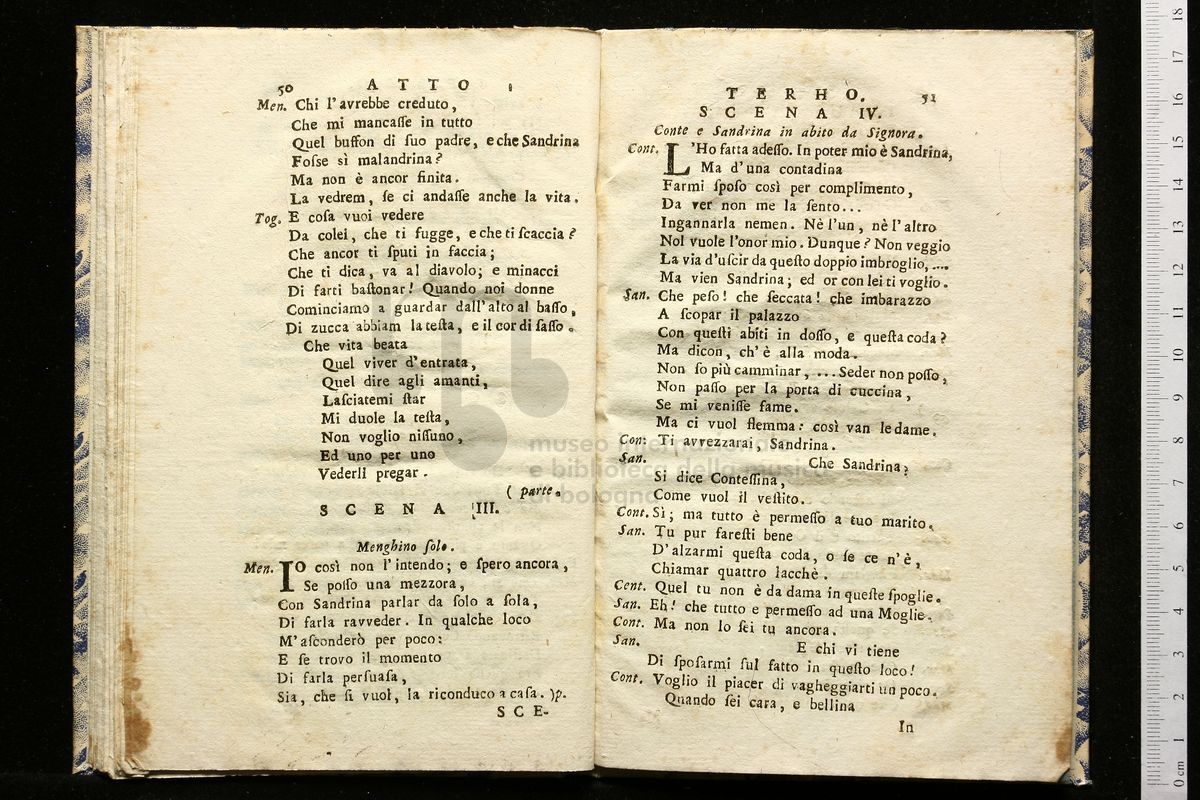 50 ATTO
Men. Chi l'avrebbe creduto,
Che mi mancaſſe in tutto
Quel buffon di ſuo padre, e che Sandrina
Foſse sì malandrina?
Ma non è ancor finita.
La vedrem, ſe ci andaſſe anche la vita.
Tog. E coſa vuoi vedere
Da colei, che ti fugge, e che ti ſcaccia?
Che ancor ti ſputi in faccia;
Che ti dica, va al diavolo; e minacci
Di farti baſtonar! Quando noi donne
Cominciamo a guardar dall'alto al baſſo,
Di zucca abbiam la teſta, e il cor di ſaſſo.
Che vita beata
Quel viver d'entrata,
Quel dire agli amanti,
Laſciatemi ſtar
Mi duole la teſta,
Non voglio niſſuno,
Ed uno per uno
Vederli pregar.
( parte.
SCENA III.
Menghino ſolo.
Men. IO così non l'intendo; e ſpero ancora,
Se poſſo una mezzora,
Con Sandrina parlar da ſolo a ſola,
Di farla ravveder. In qualche loco
M'aſconderò per poco:
E ſe trovo il momento
Di farla perſuaſa,
Sia, che ſi vuol, la riconduco a caſa. )p.
SCE-
TERHO. 51
SCENA IV.
Conte e Sandrina in abito da Signora.
Cont. L'Ho fatta adeſſo. In poter mio è Sandrina,
Ma d'una contadina
Farmi ſpoſo così per complimento,
Da ver non me la ſento...
Ingannarla nemen. Nè l'un, nè l'altro
Nol vuole l'onor mio. Dunque? Non veggio
La via d'uſcir da queſto doppio imbroglio, ....
Ma vien Sandrina; ed or con lei ti voglio.
San. Che peſo! che ſeccata! che imbarazzo
A ſcopar il palazzo
Con queſti abiti in doſſo, e queſta coda?
Ma dicon, ch'è alla moda.
Non ſo più camminar, ... Seder non poſſo,
Non paſſo per la porta di cuccina,
Se mi veniſſe fame.
Ma ci vuol flemma: così van le dame.
Con: Ti avvezzarai, Sandrina.
San. Che Sandrina;
Si dice Conteſſina,
Come vuol il veſtito.
Cont. Sì; ma tutto è permeſſo a tuo marito.
San. Tu pur fareſti bene
D'alzarmi queſta coda, o ſe ce n'è,
Chiamar quattro lacchè.
Cent. Quel tu non è da dama in queſte ſpoglie.
San. Eh! che tutto e permeſſo ad una Moglie.
Cont. Ma non lo ſei tu ancora.
San. E chi vi tiene
Di ſpoſarmi ſul fatto in queſto loco!
Cont. Voglio il piacer di vagheggiarti un poco.
Quando ſei cara, e bellina
In
museo internazionale
e biblioteca della musica
di bologna
0 cm 1 2 3 4 5 6 7 8 9 10 11 12 13 14 15 16 17 18